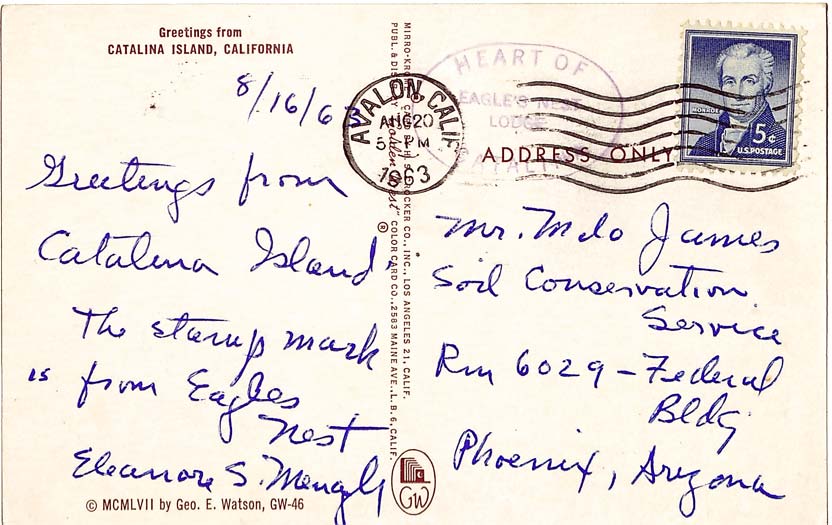 Greetings from
CATALINA ISLAND, CALIFORNIA
8/16/63
Greetings from
Catalina Island
The stamp mark
is from Eagles
Nest
Eleanore S.
© MCMLVII by Geo. E. Watson, GW-46
MIRRO-KRO
PUBL. & DIS
"Golden West" ®
CROCKER CO., INC., LOS ANGELES 21, CALIF.
COLOR CARD CO., 2583 MAINE AVE., L. B. 6, CALIF.
GW
HEART OF
EAGLE'S NEST
LODGE
AVALON, CALIF.
AUG 20
5 PM
1963
MONROE
5¢
U.S. POSTAGE
ADDRESS ONLY
Mr. Milo James
Soil Conservation
Service
Rm 6029 - Federal
Bldg
Phoenix, Arizona